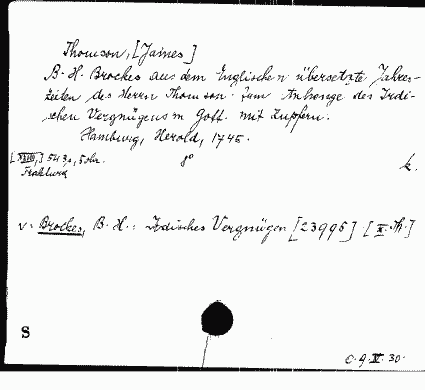 Thomson, [James]
B. H. Brockes aus dem Englischen übersetzte Jahres-
zeiten des Herrn Thomson. Zum Anhange des Irdi-
schen Vergnügens in Gott. mit Kupfern.
Hamburg, Herold, 1745.
[XVIII,] 543 S., 5 8°
Fraktur k.
v. Brockes, B. H.: Irdisches Vergnügen [23995] [X. Th.]
S
C. 9. IV. 30.